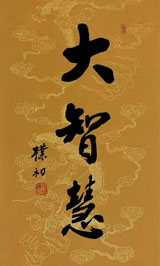 大智慧
樸初